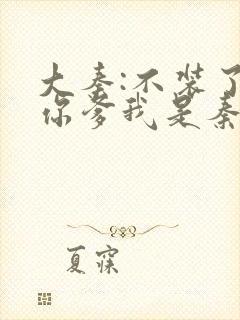 大秦:不装了
你爹我是秦
夏寐